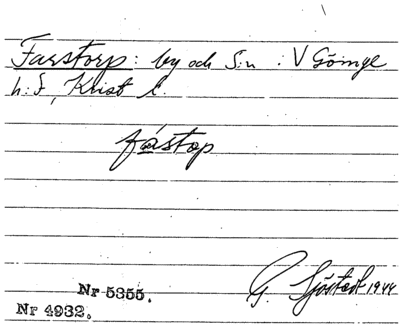 Farstorp: by och S:n : V Göinge
h:d, Krist l.
fástop
G. Sjöstedt 1944
Nr 5355.
Nr 4932.